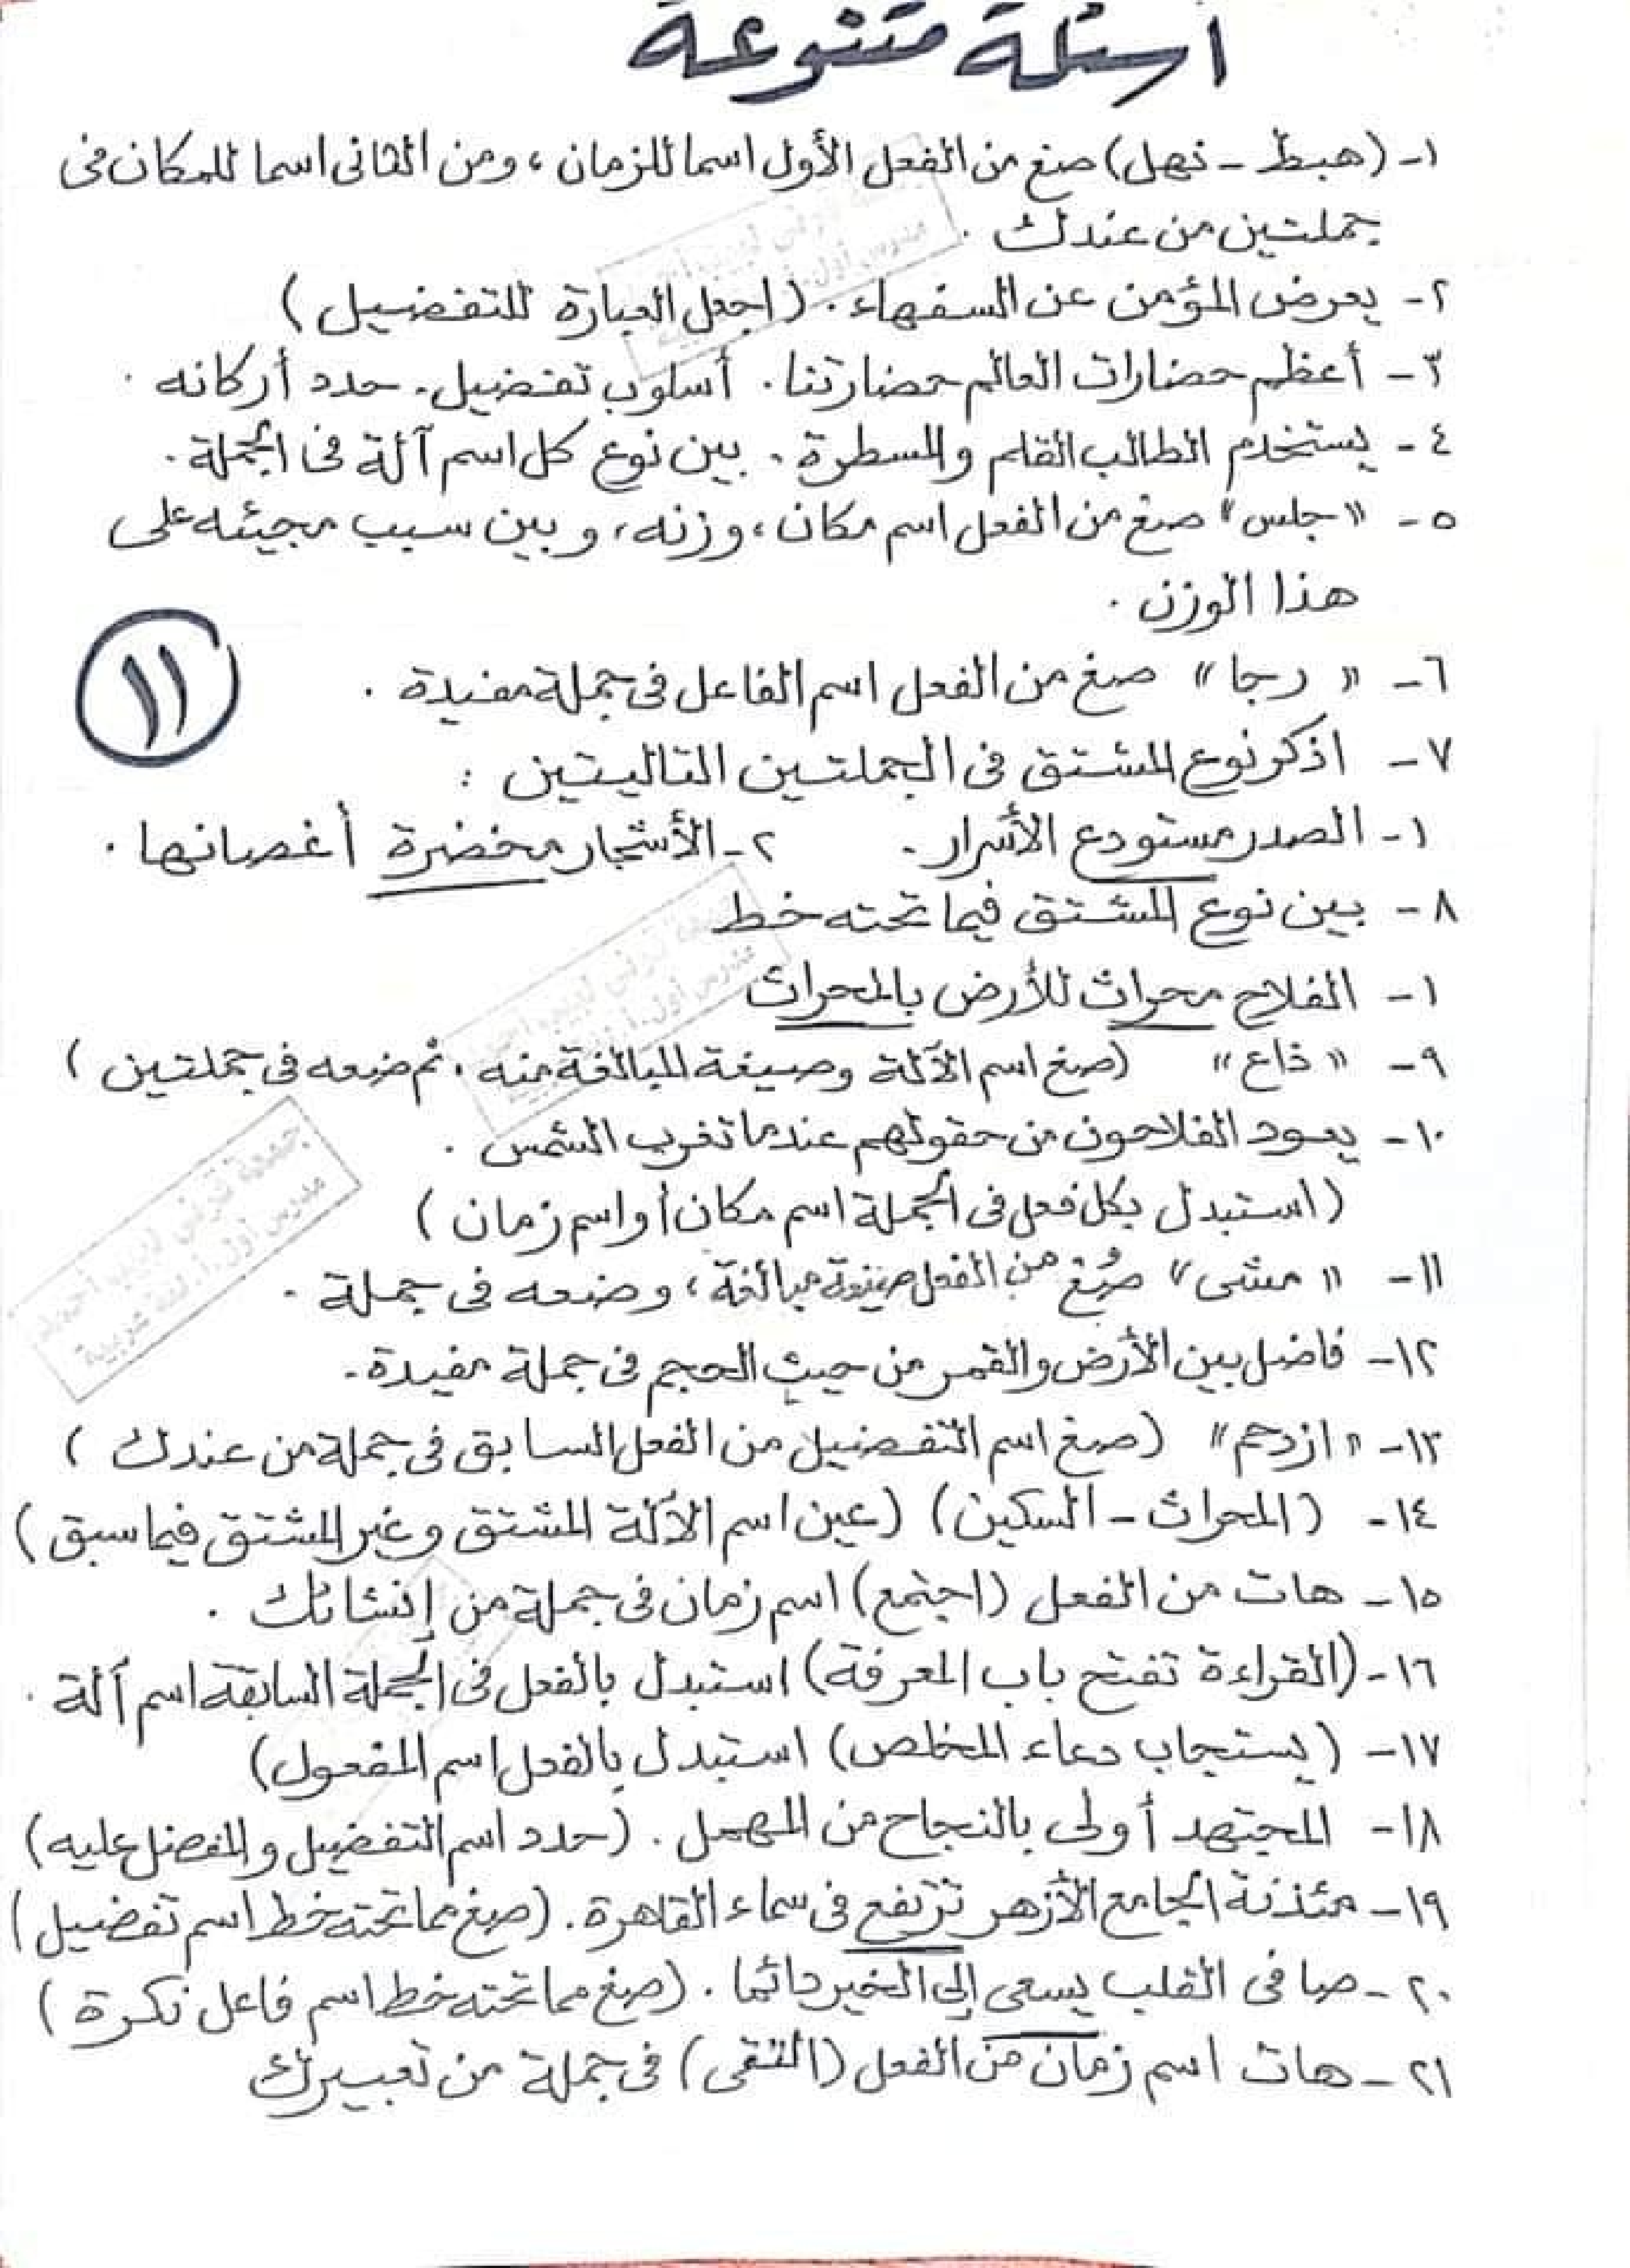 أسئلة متنوعة
١- (هبط - نهل) صغ من الفعل الأول اسما للزمان، ومن الثانى اسما للمكان فى
جملتين من عندك .
٢- يعرض المؤمن عن السفهاء. (اجعل العبارة للتفضيل)
٣- أعظم حضارات العالم حضارتنا. أسلوب تفضيل. حدد أركانه .
٤- يستخدم الطالب القلم والمسطرة. بين نوع كل اسم آلة فى الجملة.
٥- "جلس" صغ من الفعل اسم مكان، وزنه، وبين سبب مجيئه على
هذا الوزن .
٦- "رجا" صغ من الفعل اسم الفاعل فى جملة مفيدة .
١١
٧- اذكر نوع المشتق فى الجملتين التاليتين :
١- الصدر مستودع الأسرار. ٢- الأشجار مخضرة أغصانها .
٨- بين نوع المشتق فيما تحته خط
١- الفلاح محراث للأرض بالمحراث
٩- "ذاع" (صغ اسم الآلة وصيغة المبالغة منه، ثم ضعه فى جملتين)
١٠- يعود الفلاحون من حقولهم عندما تغرب الشمس .
(استبدل بكل فعل فى الجملة اسم مكان أو اسم زمان)
١١- "مشى" صُغ من الفعل صيغة مبالغة، وضعه فى جملة .
١٢- فاضل بين الأرض والقمر من حيث الحجم فى جملة مفيدة.
١٣- "ازدحم" (صغ اسم التفضيل من الفعل السابق فى جملة من عندك)
١٤- (المحراث - السكين) (عين اسم الآلة المشتق وغير المشتق فيما سبق)
١٥- هات من الفعل (اجتمع) اسم زمان فى جملة من إنشائك .
١٦- (القراءة تفتح باب المعرفة) استبدل بالفعل فى الجملة السابقة اسم آلة .
١٧- (يستجاب دعاء المخلص) استبدل بالفعل اسم المفعول)
١٨- المجتهد أولى بالنجاح من المهمل. (حدد اسم التفضيل والمفضل عليه)
١٩- مئذنة الجامع الأزهر ترتفع فى سماء القاهرة. (صغ مما تحته خط اسم تفضيل)
٢٠- صافى القلب يسعى إلى الخير دائما. (صغ مما تحته خط اسم فاعل نكرة)
٢١- هات اسم زمان من الفعل (التقى) فى جملة من تعبيرك